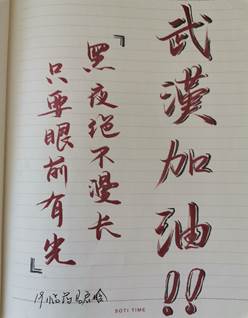 武漢加油!!
『黑夜绝不漫长
只要眼前有光』
SOTI TIME